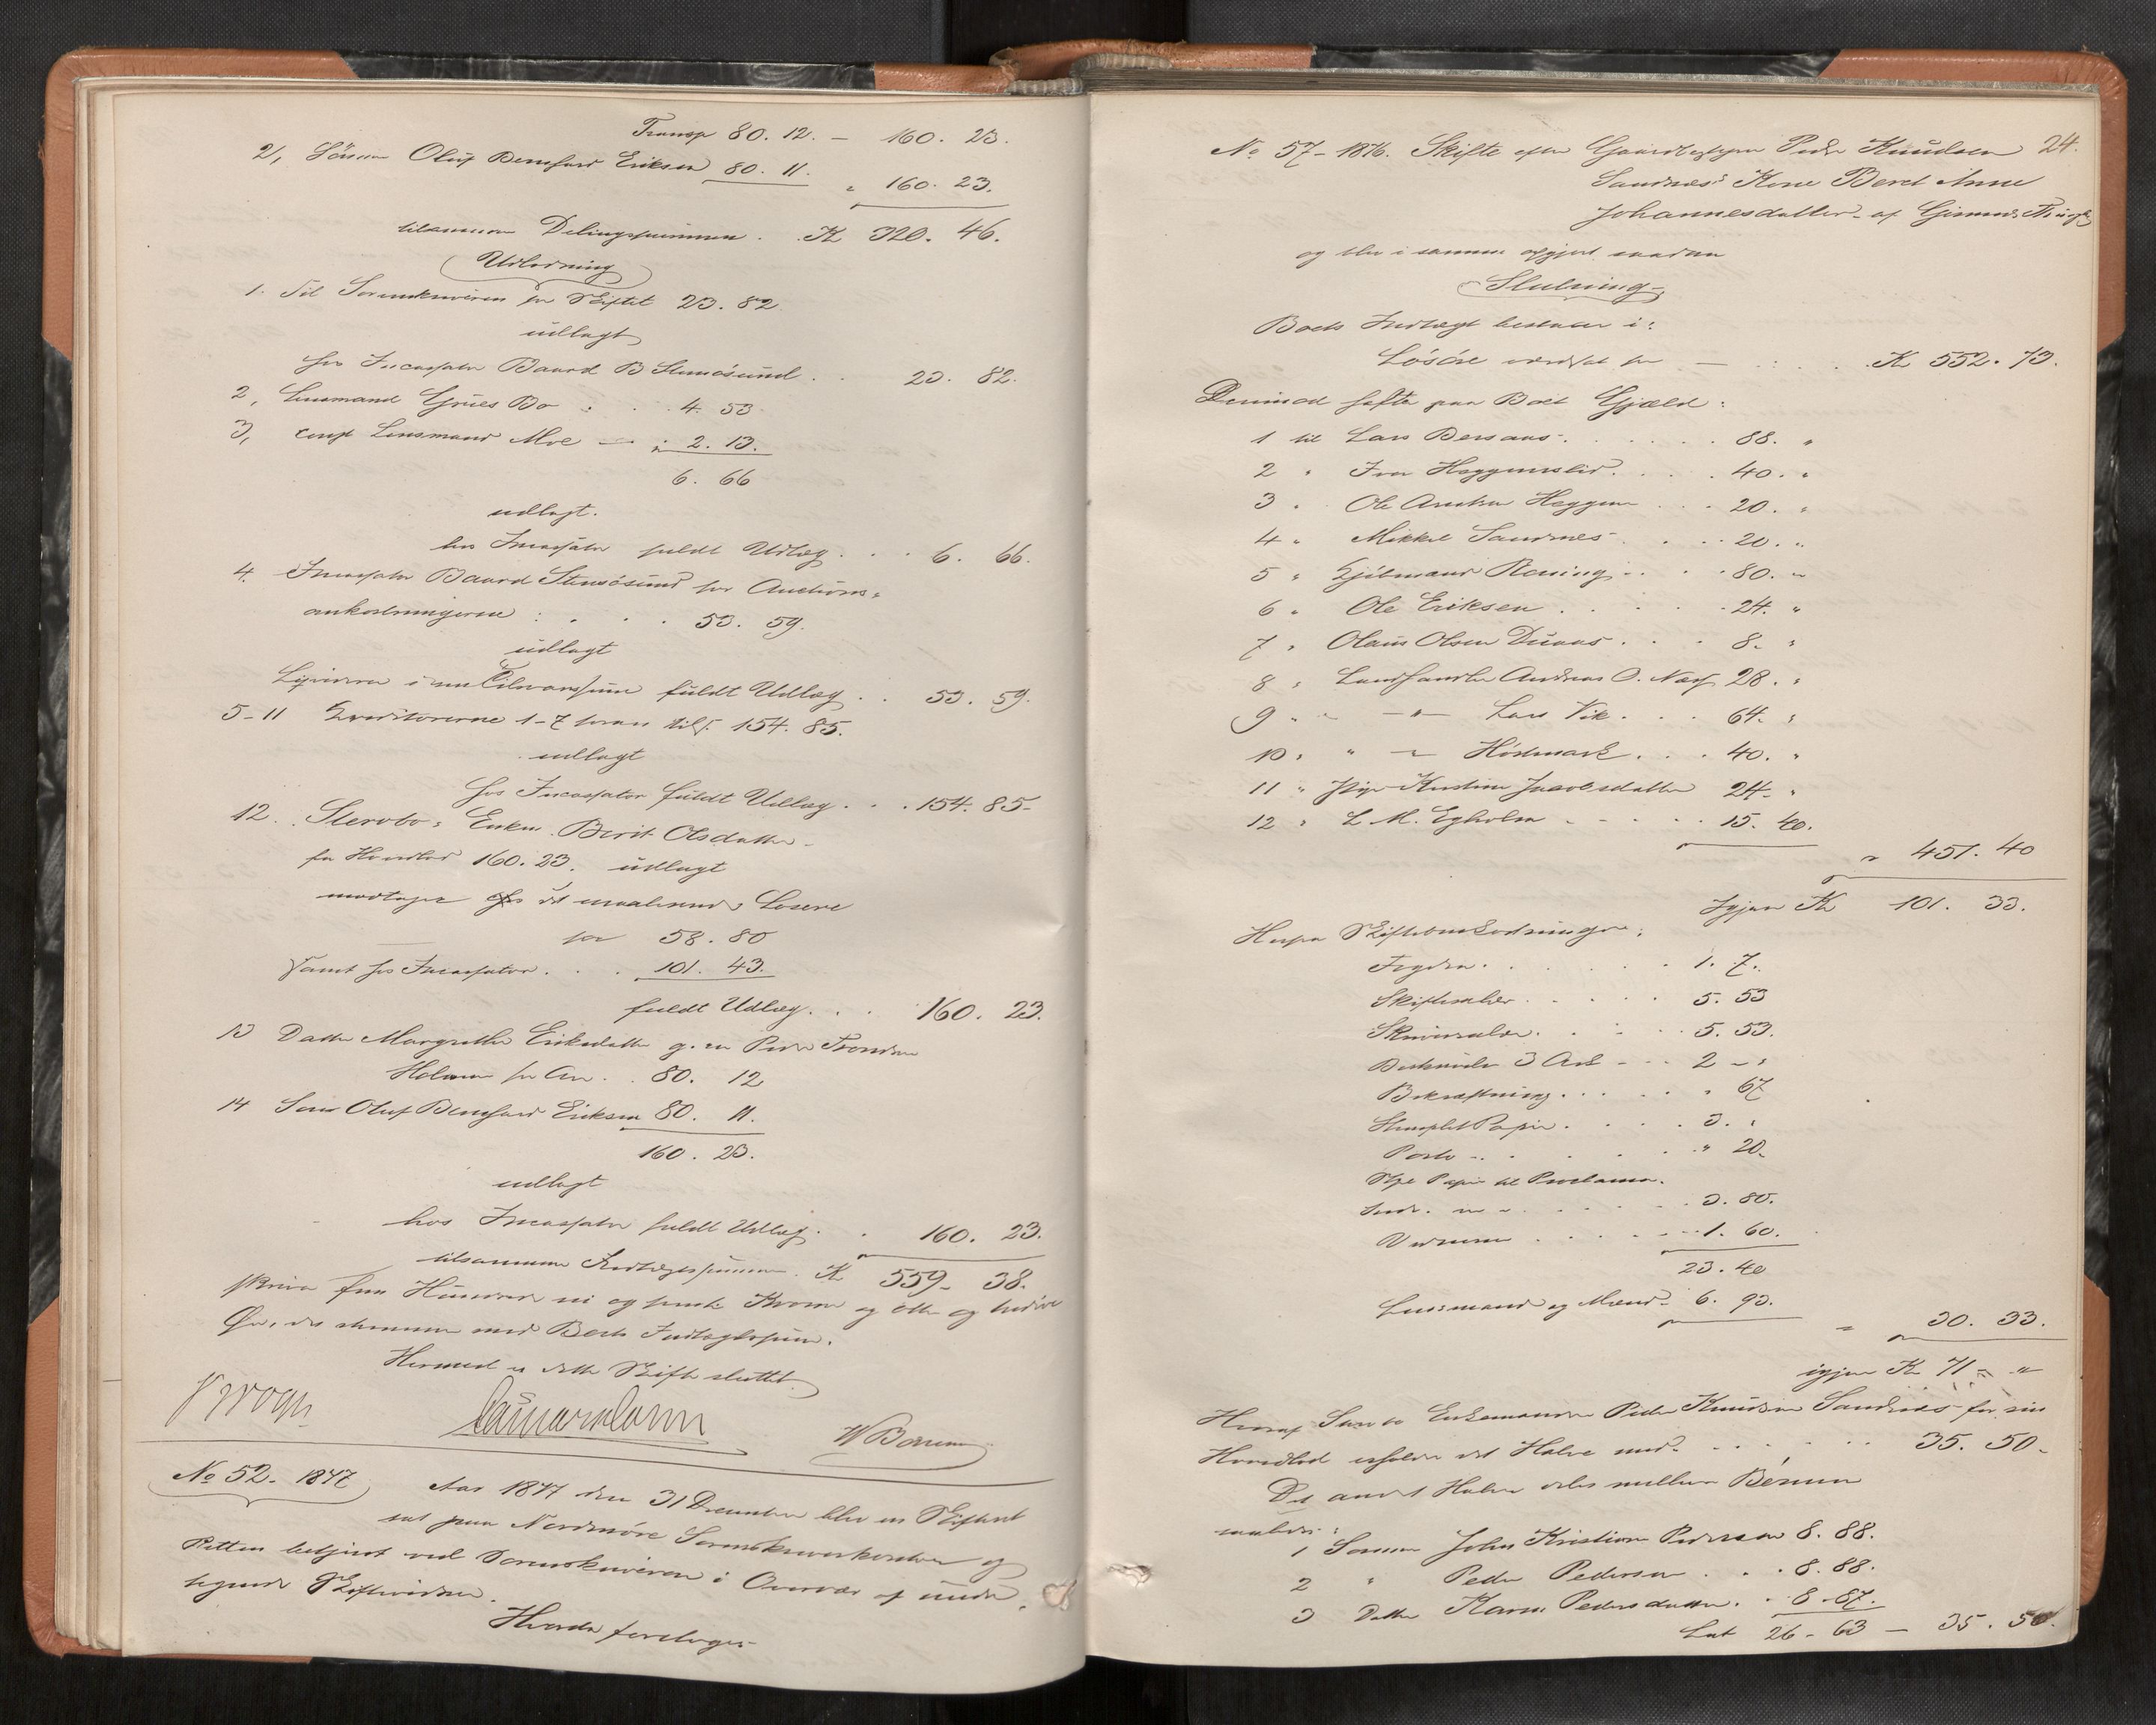 Transp 80. 12. — 160. 23.
2, Sønnen Oluf Bernhard Eriksen 80. 11. " 160. 23.
tilsammen Delingssummen . K 320. 46.
Udlodning
1. Til Sorenskriveren for Skiftet 23. 82
udlagt
hos Incassator Baard B Stensøsund . . 23. 82.
2, Lensmand Grües Bo : . . 4. 53
3, const Lensmand Moe — " 2. 13.
6. 66
udlagt.
hos Incassator fuldt Udlæg . . . 6. 66.
4. Incassator Baard Stensøsund for Auctions-
omkostningerne : . . . 53. 59.
udlagt
fuldt Udlæg . . 53. 59.
5-11 Kreditorerne 1-7 foran tils. 154. 85.
udlagt
hos Incassator fuldt Udlæg . . . 154. 85-
12. Stervbo: Enken Berit Olsdatter
for Hovedlod 160. 23. udlagt
modtager Løsøre
for 58. 80
samt hos Incassator . . . 101. 43.
fuldt Udlæg . . . 160. 23.
13 Datter Margrethe Eriksdatter g. m Peder Tronsen
Holmen for Arv . . 80. 12
14 Søn Oluf Bernhard Eriksen 80. 11.
160. 23.
udlagt
hos Incassator fuldt Udlæg . . 160. 23.
tilsammen Indtægtssummen . K 559- 38.
skriver fem Hundrede ni og femti Kroner og otte og tredive
Øre, der stemmer med Boets Indtægtssum.
Hermed er dette Skifte sluttet
No 52. 1877
Aar 1877 den 31 December blev en Skifteret
sat paa Nordmøre Sorenskriverkontor og
Retten betjent ved Sorenskriveren i Overvær af under-
tegnede Skiftevidner.
Hvorda foretoges
24.
No 57- 1876. Skifte efter Gaardbruger Peder Knudsen
Sandnes's Kone Beret Anne
Johannesdatter af
og blev i samme afgjort saadan
Slutning
Boets Indtægt bestaar i:
Løsøre værdsat for — . : . . . K 552. 73.
Derimod hefter paa Boet Gjæld:
1 til Lars Bersaas . . . . . . 88. "
2 " Iver Heggemslid . . . . 40. "
3 " Ole Heggem . . . 20. "
4 " Mikkel Sandnes . . . . 20. "
5 " Kjøbmand Rening . . . . 80. "
6 " Ole Eriksen . . . . . 24. "
7 " Olaus Olsen Duaas . . . 8. "
8 " Landhandler Andreas O. Næss 28. "
9 " " -"- Lars Vik . . . 64. "
10 " " -"- Hødmark . . . 40. "
11 " Pige Kirstine Jacobsdatter 24- "
12 " L M. Egholm . - - . . . 15. 40.
" 451. 40
Igjen K 101. 33.
Herfra Skifteomkostninger:
Fogden . . . . . . . 1. 7.
Skiftesalær . . . . . 5. 53
Skriversalær . . . . . 5. 53.
Beskrivelse 3 Ark - - - 2 - "
Bekræftning . . . . . " 67
Stemplet Papir . . . . 3. "
Porto . . . . . . . " 20.
Stpl Papir til Proclama.
Indr. m m . . . . . . 3. 80.
Vidnerne . . . . . . 1. 60.
23. 40
Lensmand og Mænd - 6. 93.
" 30. 33.
igjen K 71 — "
Heraf Enkemanden Peder Knudsen Sandnes for sin
Hovedlod erholder det Halve med . . . . . . 35. 50-
Det andet Halve deles mellem Børnene
saaledes:
1 Sønnen John Kristian Pedersen 8. 88.
2 " Peder Pedersen . . . 8. 88.
3 Datter Karen Pedersdatter . . 8. 87.
Lat 26 - 63 — 35. 50.